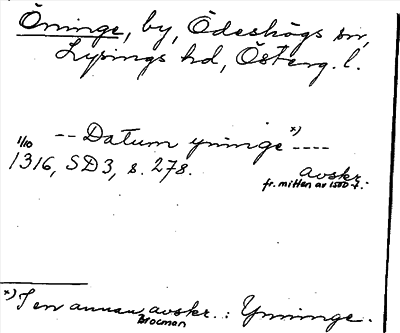 Öninge, by, Ödeshögs sn,
Lysings hd, Österg. l.
-- Datum yninge *) ----
1/10
1316, SD3, s. 278. avskr.
fr. mitten av 1500-t.
*) I en annan avskr.: Ynninge.
Brocman